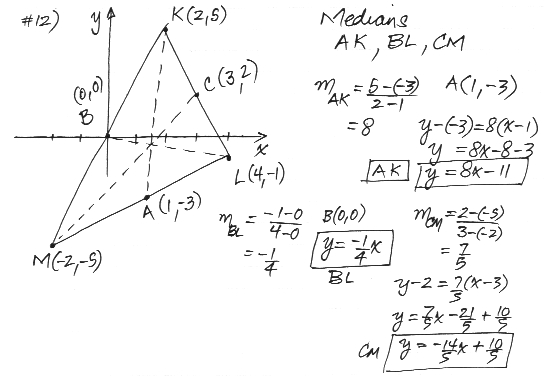 #12)
y
K(2,5)
C(3,2)
(0,0)
B
x
L(4,-1)
A(1,-3)
M(-2,-5)
Medians
AK, BL, CM
m_AK = 5-(-3)/2-1 A(1,-3)
= 8 y-(-3)=8(x-1)
y = 8x-8-3
AK y = 8x-11
m_BL = -1-0/4-0 B(0,0)
= -1/4 y = -1/4 x
BL
m_CM = 2-(-5)/3-(-2)
= 7/5
y-2 = 7/5(x-3)
y = 7/5x - 21/5 + 10/5
CM y = -14/5x + 10/5